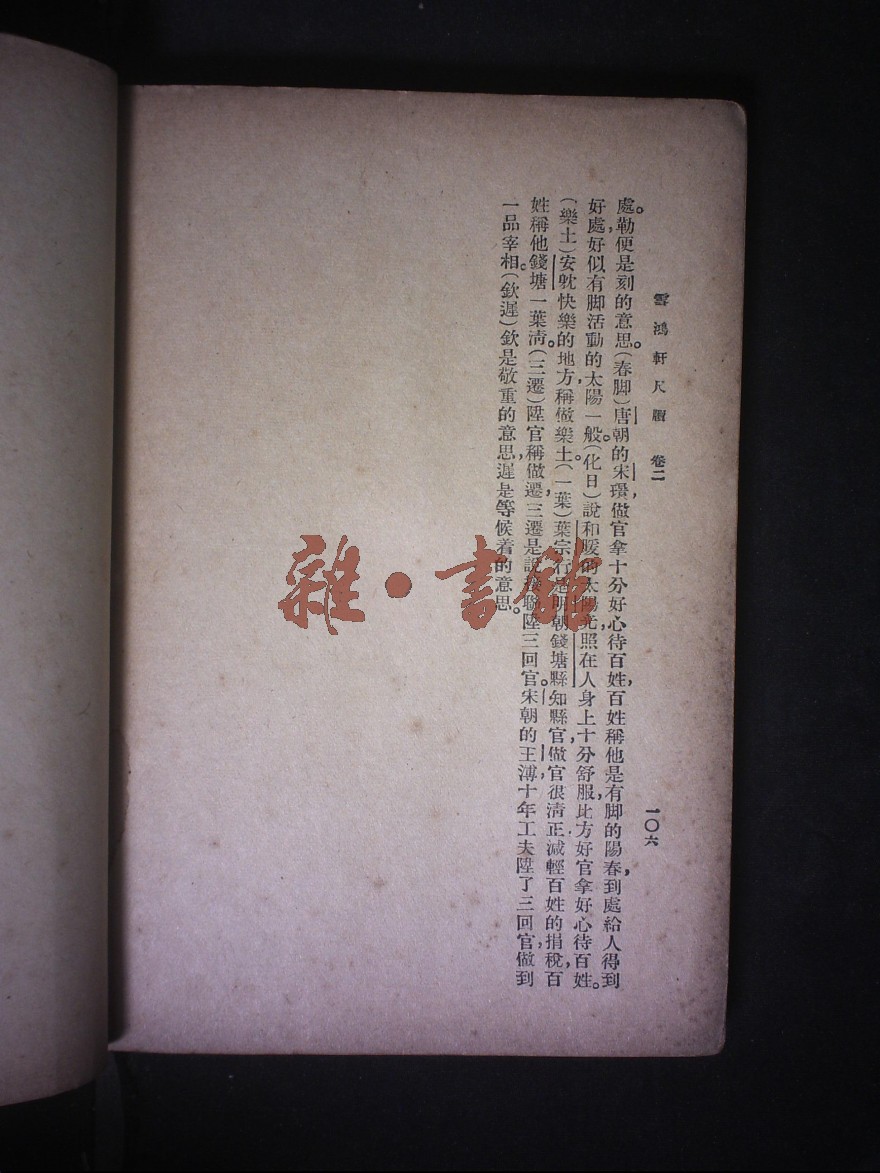 雪鴻軒尺牘　卷二　一〇六
處。勒便是刻的意思。(春脚)唐朝的宋璟，做官拿十分好心待百姓，百姓稱他是有脚的陽春，到處給人得到
好處，好似有脚活動的太陽一般。(化日)說和暖的太陽光，照在人身上十分舒服，比方好官拿好心待百姓。
(樂土)安耽快樂的地方，稱做樂土。(一葉)葉宗行是明朝錢塘縣知縣官，做官很清正，減輕百姓的捐稅，百
姓稱他錢塘一葉清。(三遷)陞官稱做遷，三遷是說連陞三回官。宋朝的王溥，十年工夫陞了三回官，做到
一品宰相。(欽遲)欽是敬重的意思，遲是等候着的意思。
雜·書館